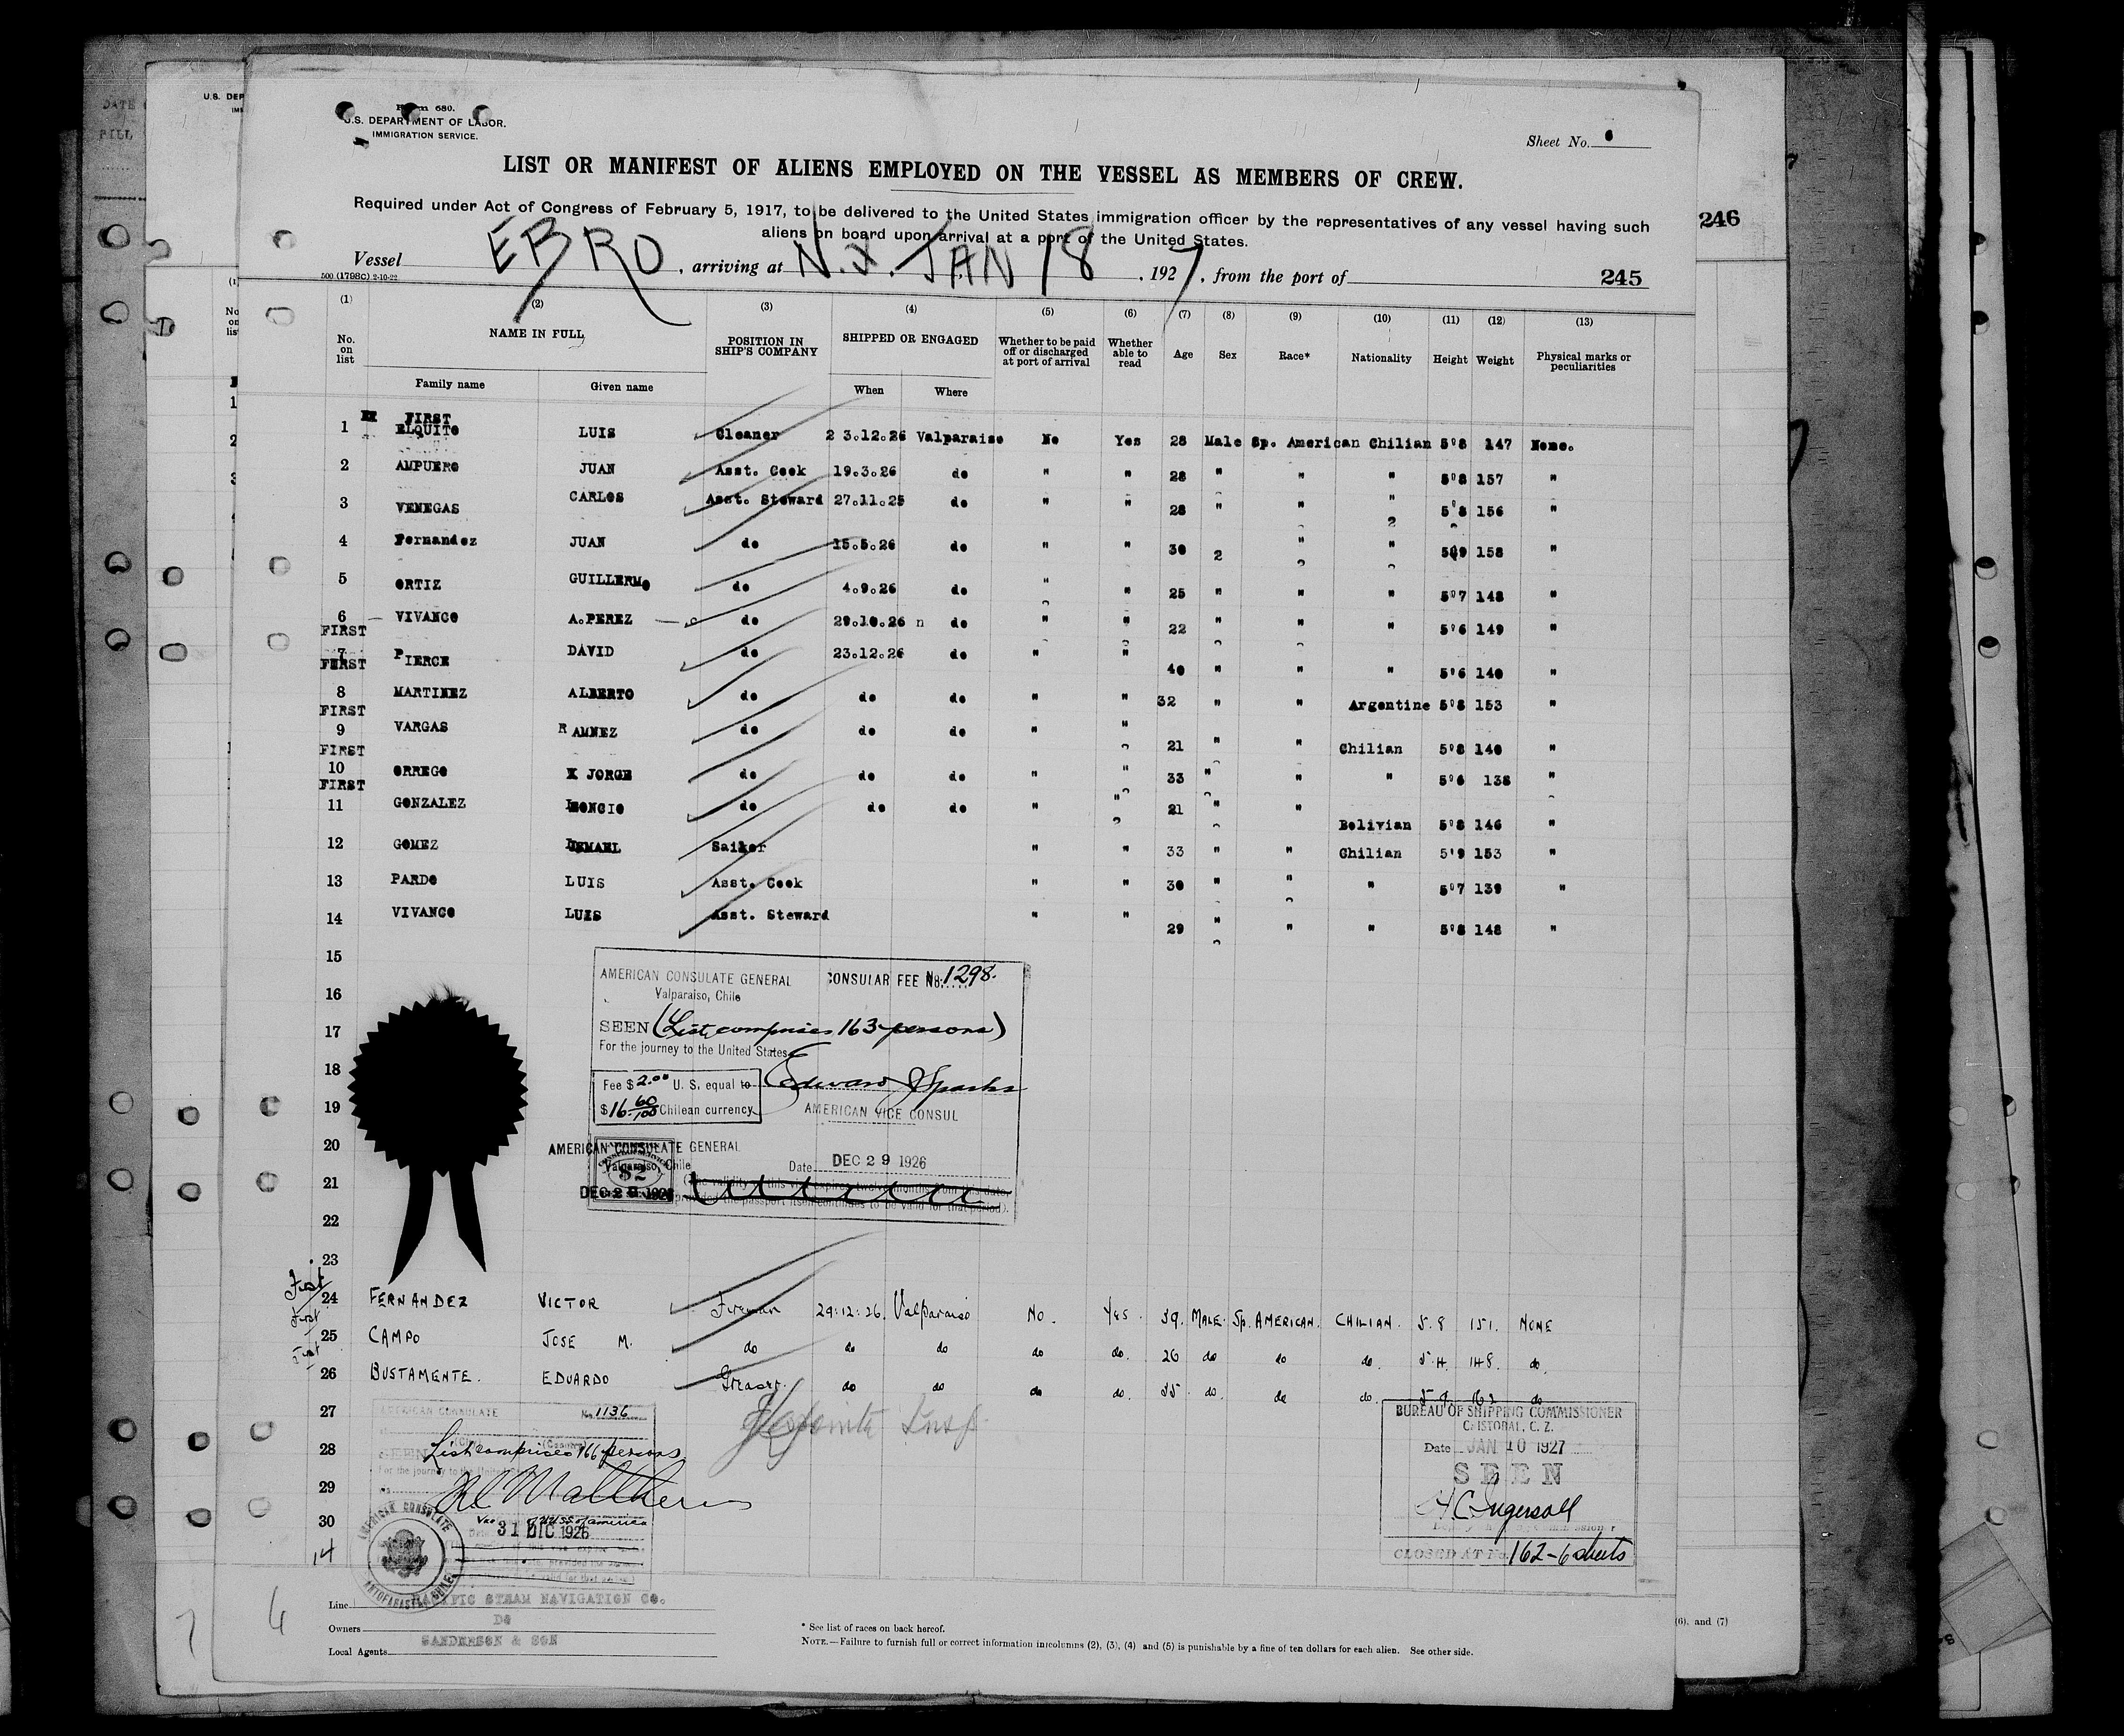 Form 680.
U.S. DEPARTMENT OF LABOR.
IMMIGRATION SERVICE.
Sheet No. 6
LIST OR MANIFEST OF ALIENS EMPLOYED ON THE VESSEL AS MEMBERS OF CREW.
Required under Act of Congress of February 5, 1917, to be delivered to the United States immigration officer by the representatives of any vessel having such
aliens on board upon arrival at a port of the United States.
246
Vessel EBRO, arriving at N.Y. JAN 18, 1927, from the port of
500 (1798C) 2-10-22
245
(1) (2) (3) (4) (5) (6) (7) (8) (9) (10) (11) (12) (13)
No. on list NAME IN FULL POSITION IN SHIP'S COMPANY SHIPPED OR ENGAGED Whether to be paid off or discharged at port of arrival Whether able to read Age Sex Race* Nationality Height Weight Physical marks or peculiarities
Family name Given name When Where
FIRST
1 ELQUITO LUIS Cleaner 23.12.26 Valparaiso No Yes 28 Male Sp. American Chilian 5'8 147 None.
2 AMPUERO JUAN Asst. Cook 19.3.26 do " " 28 " " " 5'8 157 "
3 VENEGAS CARLOS Asst. Steward 27.11.25 do " " 28 " " " 5'8 156 "
4 Fernandez JUAN do 15.5.26 do " " 30 2 " " 5'9 158 "
5 ORTIZ GUILLERMO do 4.9.26 do " " 25 " " " 5'7 148 "
6 VIVANCO A.PEREZ do 20.10.26 n do " " 22 " " " 5'6 149 "
FIRST
7 PIERCE DAVID do 23.12.26 do " " 40 " " " 5'6 140 "
FIRST
8 MARTINEZ ALBERTO do do do " " 32 " " Argentine 5'8 153 "
FIRST
9 VARGAS RAMNEZ do do do " " 21 " " Chilian 5'8 140 "
FIRST
10 ORREGO X JORGE do do do " " 33 " " " 5'6 138 "
FIRST
11 GONZALEZ LEONCIO do do do " " 21 " " Bolivian 5'8 146 "
12 GOMEZ ISMAEL Sailor " " 33 " " Chilian 5'9 153 "
13 PARDO LUIS Asst. Cook " " 30 " " " 5'7 139 "
14 VIVANCO LUIS Asst. Steward " " 29 " " " 5'8 148 "
15
16
17
18
19
20
21
22
23
AMERICAN CONSULATE GENERAL CONSULAR FEE No. 1298.
Valparaiso, Chile
SEEN (List comprises 163 persons)
For the journey to the United States
Edward J Sparks
Fee $ 2.00 U. S. equal to
$16 60/100 Chilean currency
AMERICAN VICE CONSUL
AMERICAN CONSULATE GENERAL
Valparaiso, Chile
Date DEC 29 1926
$2
DEC 29 1926
(The validity of this visa expires twelve months from this date,
provided the passport itself continues to be valid for that period).
First
24 FERNANDEZ VICTOR Fireman 29:12:26. Valparaiso NO. Yes. 39. MALE. Sp. AMERICAN. CHILIAN. 5.8 151. NONE
First
25 CAMPO JOSE M. do do do do do. 26 do do do. 5.4. 148. do.
First
26 BUSTAMENTE. EDUARDO Greaser. do do do do. 35. do. do do 5-9. 162 do
27
28
29
30
14
AMERICAN CONSULATE No. 1136
List comprises 166 persons
For the journey to the United States
31 DIC 1926
AMERICAN CONSULATE
ANTOFAGASTA, CHILE
BUREAU OF SHIPPING COMMISSIONER
CRISTOBAL, C. Z.
Date JAN 10 1927
SEEN
H C Ingersoll
CLOSED AT No. 162-6 sheets
Line PACIFIC STEAM NAVIGATION CO.
Owners DO
Local Agents SANDERSON & SON
* See list of races on back hereof.
NOTE.—Failure to furnish full or correct information in columns (2), (3), (4) and (5) is punishable by a fine of ten dollars for each alien. See other side.
(6), and (7)